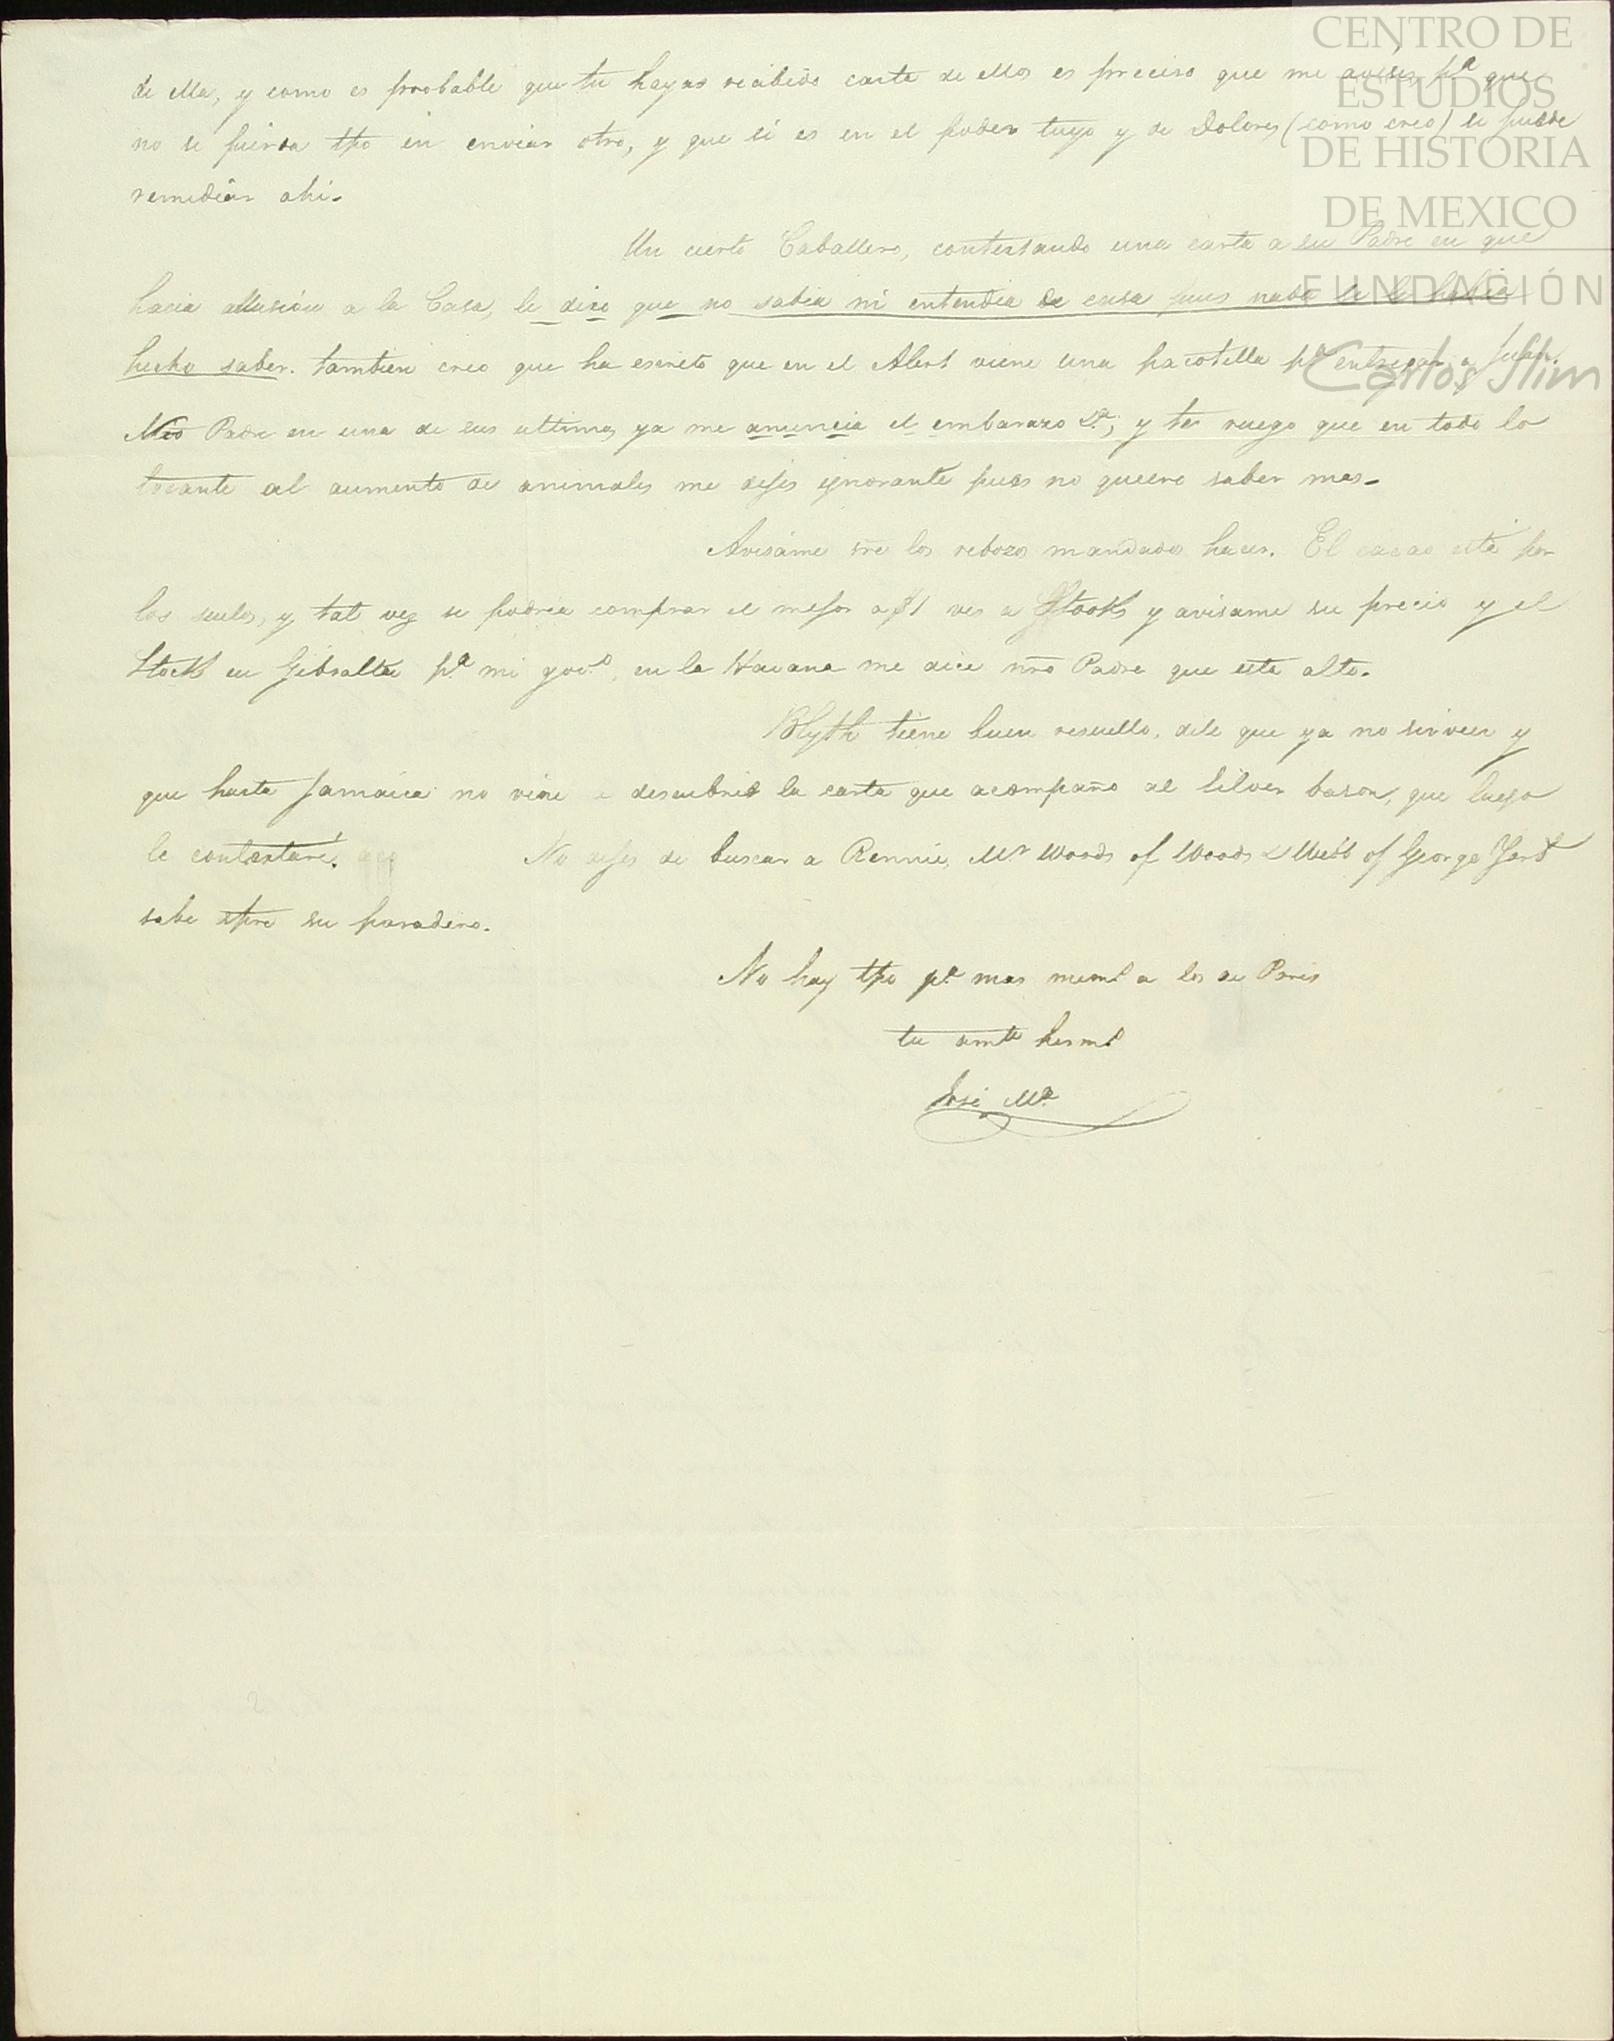 CENTRO DE
ESTUDIOS
DE HISTORIA
DE MEXICO
FUNDACIÓN
Carlos Slim
de ella, y como es probable que tu hayas recibido carta de ellos es preciso que me avises pª que
no se pierda tpo en enviar otro, y que si es en el poder tuyo y de Dolores (como creo) se puede
remediar ahi.
Un cierto Caballero, contestando una carta a su Padre en que
hacia allusion a la Casa, le dice que no sabia ni entendia de cosa pues nada se le habia
hecho saber. tambien creo que ha escrito que en el Alert viene una pacotilla pª entregar a
Padre en una de sus ultimas ya me anuncia el embarazo &ª; y te ruego que en todo lo
tocante al aumento de animales me dejes ignorante pues no quiero saber mas.
Avisame sre los rebozos mandados hacer. El cacao está por
los suelos, y tal vez se podria comprar el mejor a $1 ves a Stooks y avisame su precio y el
Stock en Gibraltar pª mi govº, en la Havana me dice nro Padre que esta alto.
Blyth tiene buen resuello, dile que ya no sirveen y
que hasta Jamaica no vine a descubrir la carta que acompaño al silver bason, que luego
le contestaré. No dejes de buscar a Rennie, Mr Woods of Woods & Webb of George Yard
sabe spre su paradero.
No hay tpo pª mas meml a los de Paris
tu amte hermº
José Mª
2